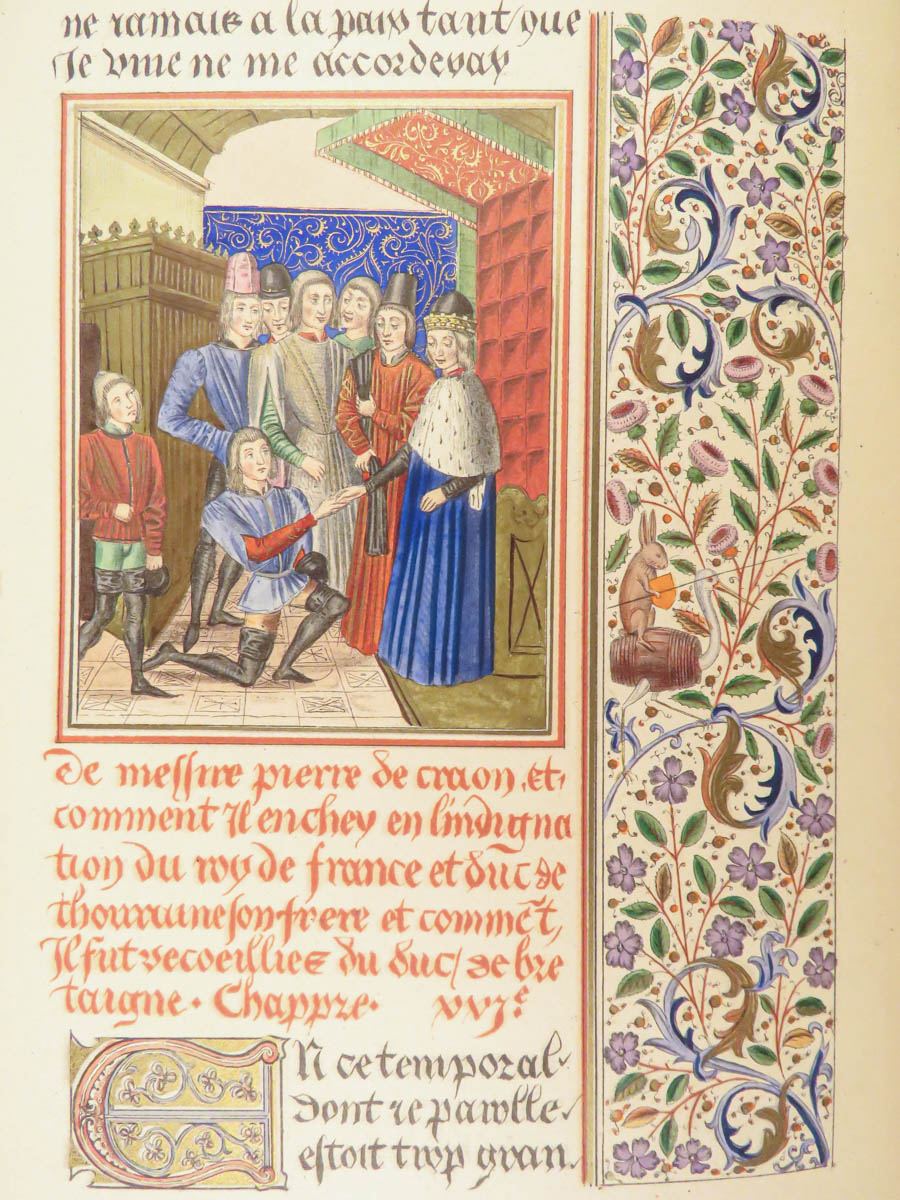 ne jamais a la paix tant que
Je vive ne me accorderay
De messire pierre de craon, et
comment Il enchey en lindigna
tion du roy de france et duc de
thourraine son frere et commēt,
Il fut recoeillies du duc de bre
taigne. Chappre. xxjᵉ
EN ce temporal
dont je parolle
estoit trop gran